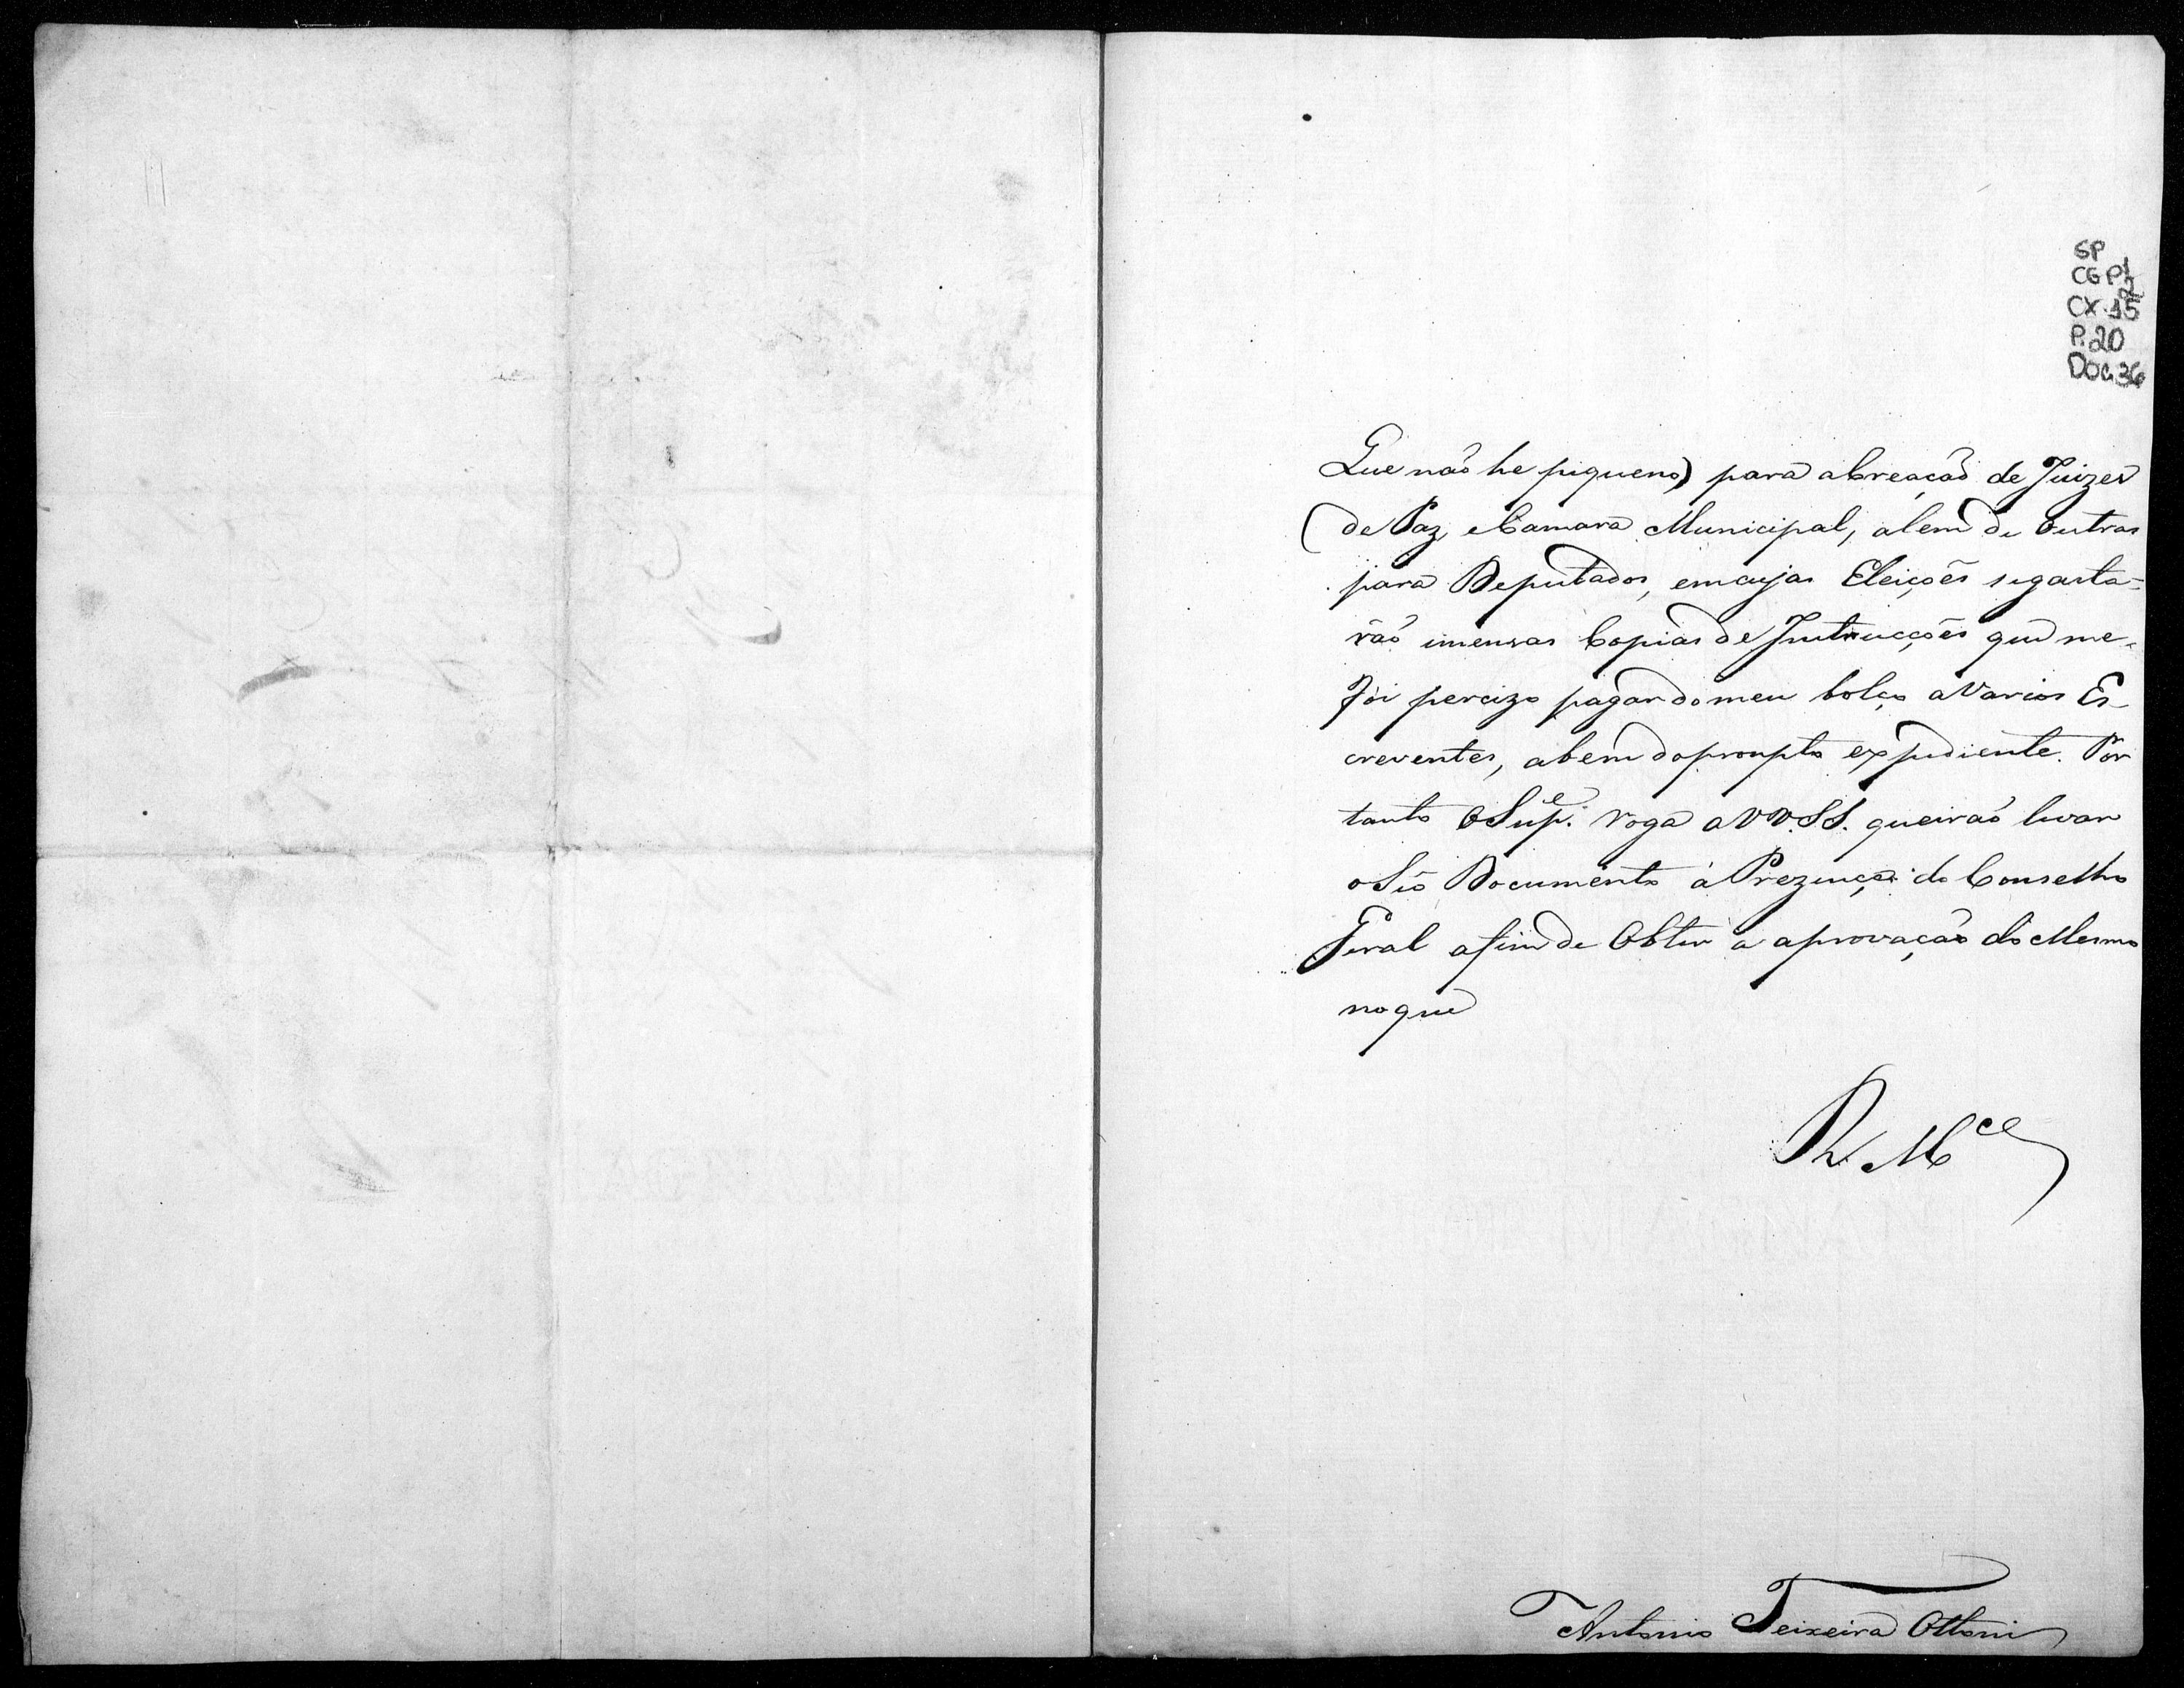 SP
CGP1
2
CX.15
P.20
Doc.36
Que não he piqueno) para a Creação de Juizes
(de Paz, e Camara Municipal, alem de Outras
para Deputados, em cujas Eleições se gasta=
rão imensas Copias de Instrucções que me
foi percizo pagar do meu bolço a Varios Es-
creventes, a bem do prompto expediente. Por
tanto O Sup.e roga a VV.SS. queirão levar
o Seo Documento á Prezença do Conselho
Geral afim de Obter a aprovação do Mesmo
no que
R. Mce
Antonio Teixeira Ottoni